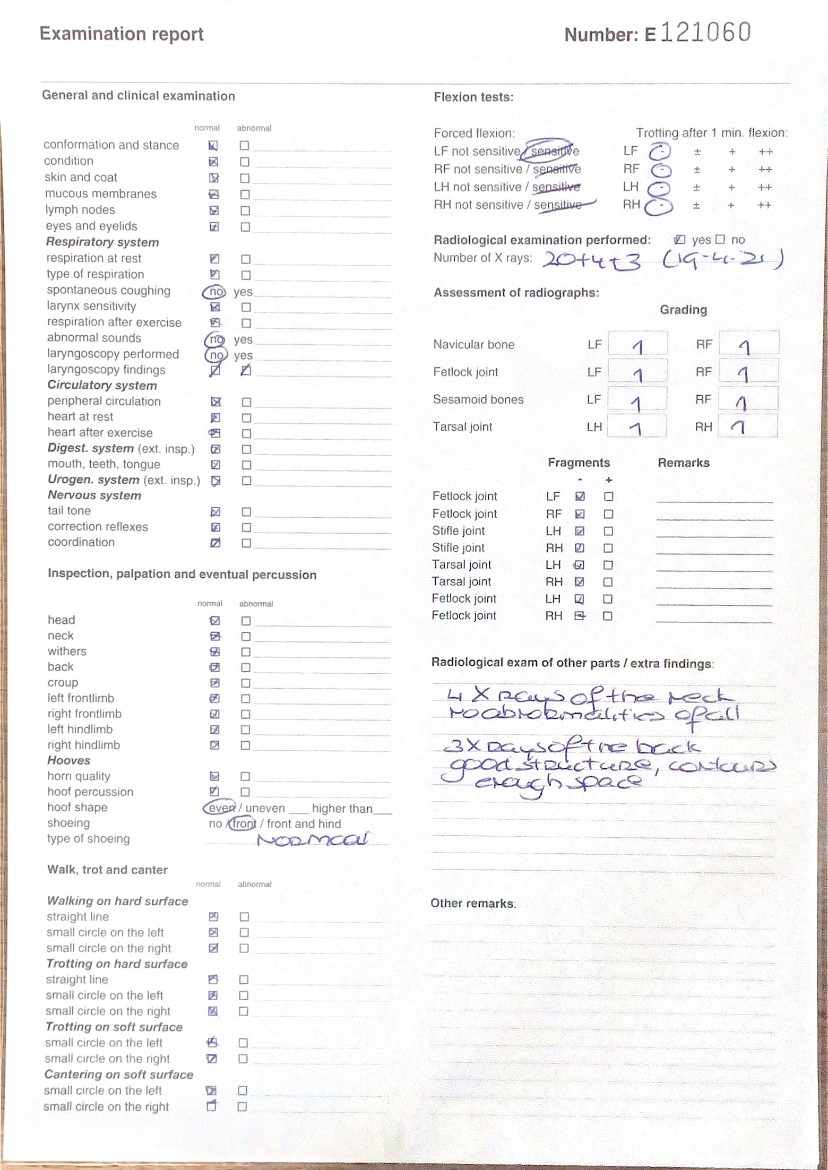 Examination report
Number: E 121060
General and clinical examination
normal abnormal
conformation and stance
condition
skin and coat
mucous membranes
lymph nodes
eyes and eyelids
Respiratory system
respiration at rest
type of respiration
spontaneous coughing no yes
larynx sensitivity
respiration after exercise
abnormal sounds no yes
laryngoscopy performed no yes
laryngoscopy findings
Circulatory system
peripheral circulation
heart at rest
heart after exercise
Digest. system (ext. insp.)
mouth, teeth, tongue
Urogen. system (ext. insp.)
Nervous system
tail tone
correction reflexes
coordination
Inspection, palpation and eventual percussion
normal abnormal
head
neck
withers
back
croup
left frontlimb
right frontlimb
left hindlimb
right hindlimb
Hooves
horn quality
hoof percussion
hoof shape even / uneven ___ higher than___
shoeing no / front / front and hind
type of shoeing normal
Walk, trot and canter
normal abnormal
Walking on hard surface
straight line
small circle on the left
small circle on the right
Trotting on hard surface
straight line
small circle on the left
small circle on the right
Trotting on soft surface
small circle on the left
small circle on the right
Cantering on soft surface
small circle on the left
small circle on the right
Flexion tests:
Forced flexion: Trotting after 1 min. flexion:
LF not sensitive / sensitive LF - ± + ++
RF not sensitive / sensitive RF - ± + ++
LH not sensitive / sensitive LH - ± + ++
RH not sensitive / sensitive RH - ± + ++
Radiological examination performed: yes no
Number of X rays: 20+4+3 (19-4-21)
Assessment of radiographs:
Grading
Navicular bone LF 1 RF 1
Fetlock joint LF 1 RF 1
Sesamoid bones LF 1 RF 1
Tarsal joint LH 1 RH 1
Fragments Remarks
- +
Fetlock joint LF
Fetlock joint RF
Stifle joint LH
Stifle joint RH
Tarsal joint LH
Tarsal joint RH
Fetlock joint LH
Fetlock joint RH
Radiological exam of other parts / extra findings:
4 X rays of the neck
no abnormalities of all
3 X rays of the back
good structure, contours
enough space
Other remarks.